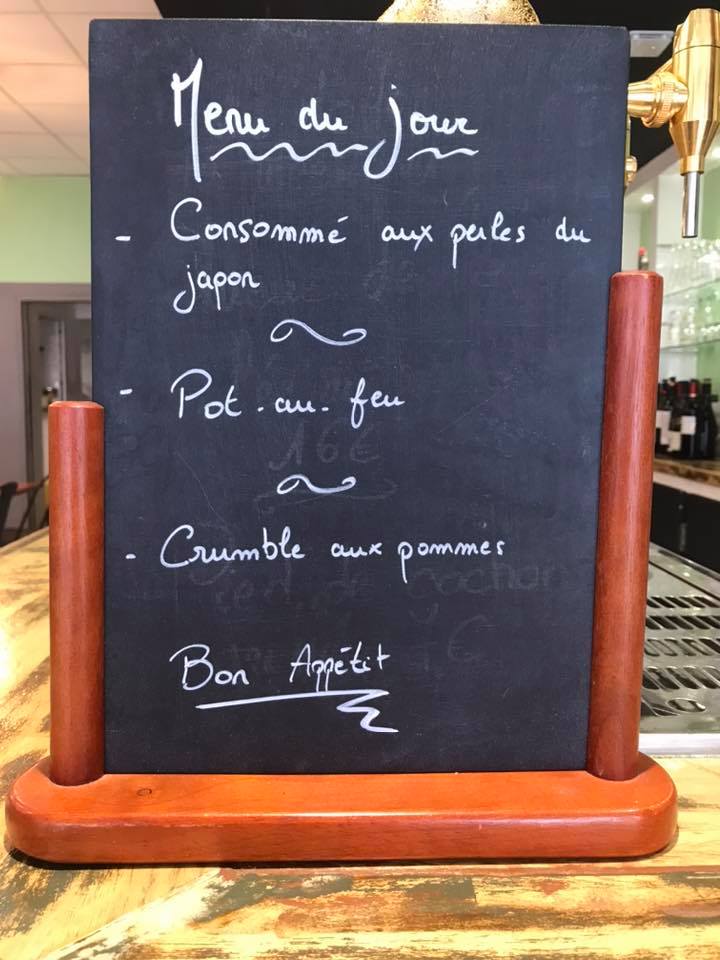 Menu du jour
- Consommé aux perles du
japon
- Pot-au-feu
16€
- Crumble aux pommes
Bon Appétit